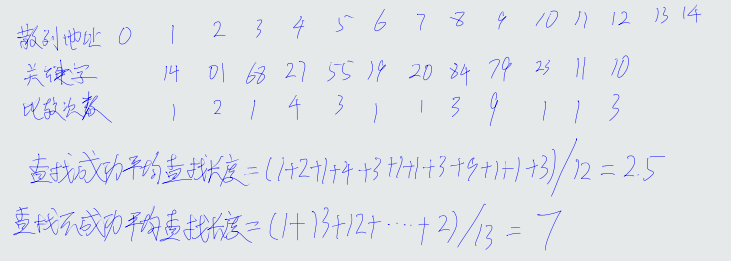 散列地址 0 1 2 3 4 5 6 7 8 9 10 11 12 13 14
关键字 14 01 68 27 55 19 20 84 79 23 11 10
比较次数 1 2 1 4 3 1 1 3 9 1 1 3
查找成功平均查找长度=(1+2+1+4+3+1+1+3+9+1+1+3)/12=2.5
查找不成功平均查找长度=(1+13+12+……+2)/13=7